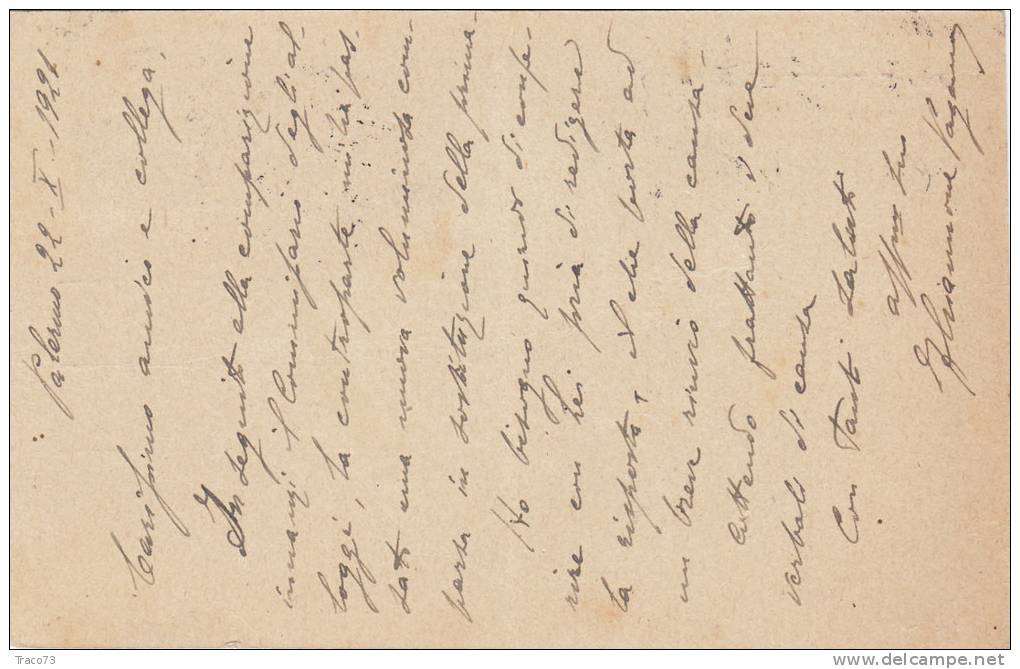 Palermo 22-X-1921
Carissimo amico e collega,
In seguito alla comparizione
innanzi il Commissario degli al-
loggi, la controparte mi ha pas-
sato una nuova voluminosa com-
parsa in sostituzione della prima.
Ho bisogno quindi di confe-
rire con Lei pria di redigere
la risposta, il che porta ad
un breve rinvio della causa.
Attendo frattanto i due
verbali di causa
Con tanti saluti
affmo suo
Pagano
Traco73
delcampe.net